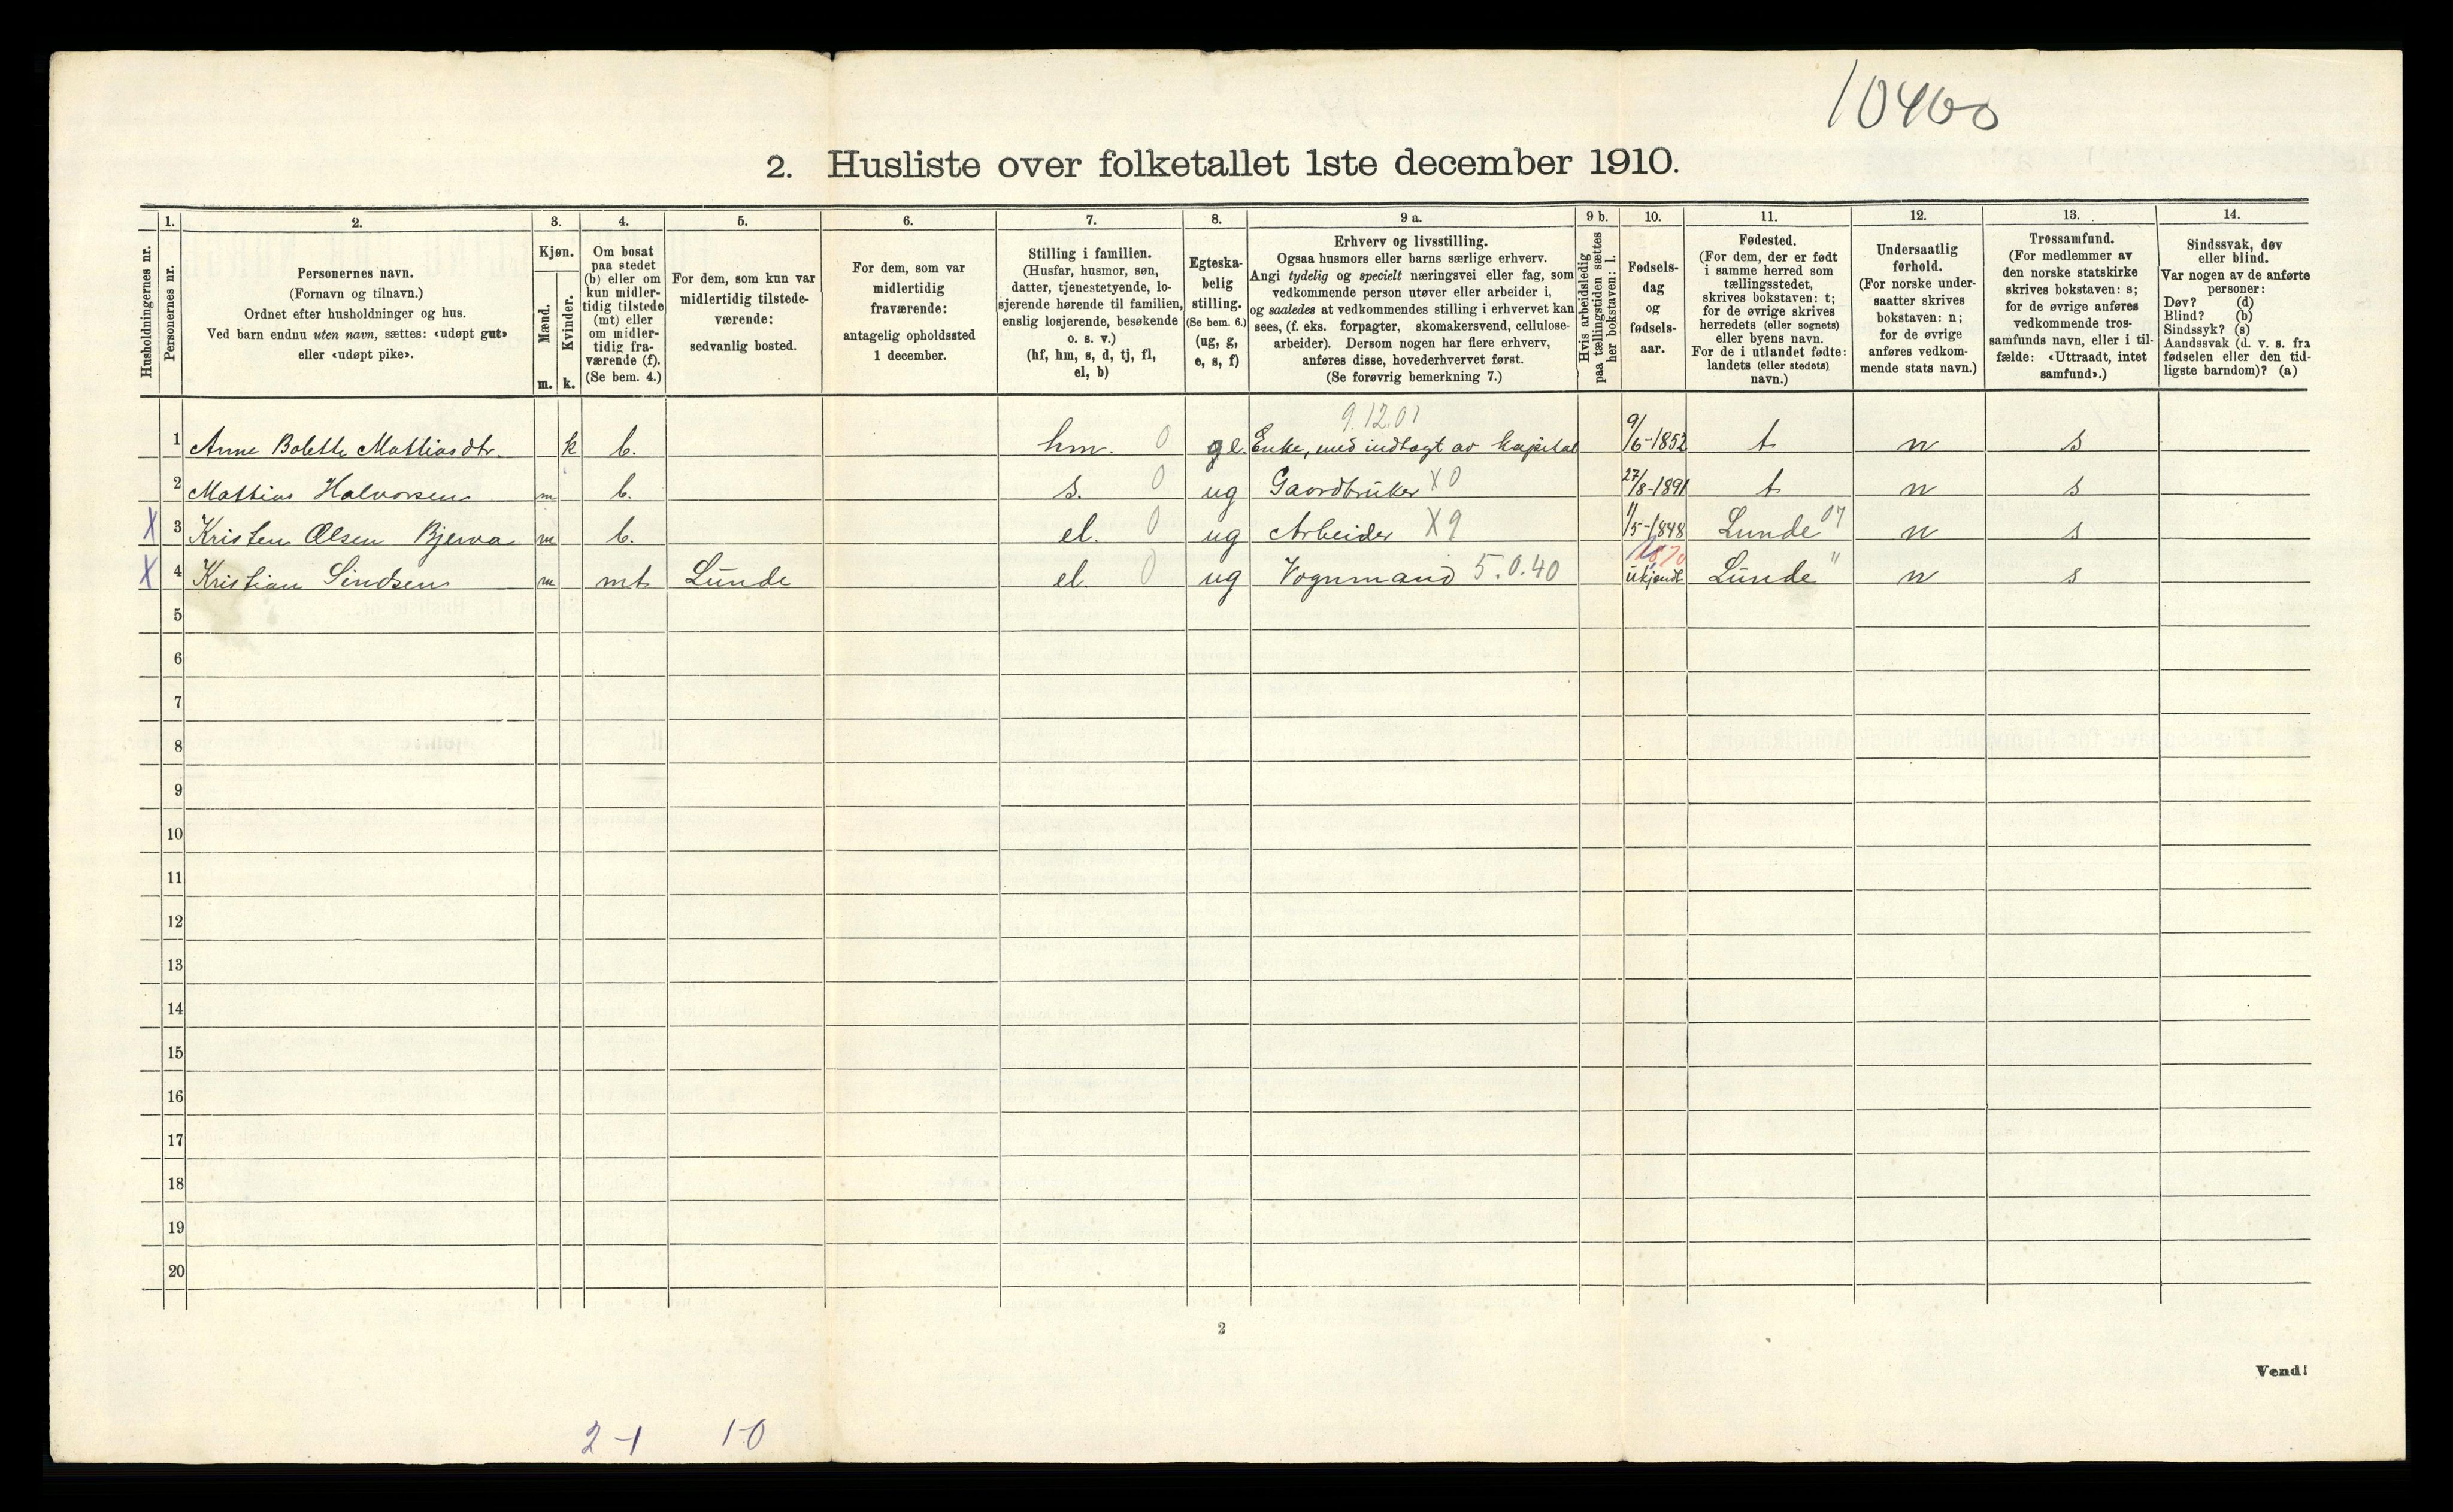 10400
2. Husliste over folketallet 1ste december 1910.
Husholdningernes nr.
1.
Personernes nr.
2.
Personernes navn.
(Fornavn og tilnavn.)
Ordnet efter husholdninger og hus.
Ved barn endnu uten navn, sættes: «udøpt gut»
eller «udøpt pike».
3.
Kjøn.
Mænd.
m.
Kvinder.
k.
4.
Om bosat
paa stedet
(b) eller om
kun midler-
tidig tilstede
(mt) eller
om midler-
tidig fra-
værende (f).
(Se bem. 4.)
5.
For dem, som kun var
midlertidig tilstede-
værende:
sedvanlig bosted.
6.
For dem, som var
midlertidig
fraværende:
antagelig opholdssted
1 december.
7.
Stilling i familien.
(Husfar, husmor, søn,
datter, tjenestetyende, lo-
sjerende hørende til familien,
enslig losjerende, besøkende
o. s. v.)
(hf, hm, s, d, tj, fl,
el, b)
8.
Egteska-
belig
stilling.
(Se bem. 6.)
(ug, g,
e, s, f)
9 a.
Erhverv og livsstilling.
Ogsaa husmors eller barns særlige erhverv.
Angi tydelig og specielt næringsvei eller fag, som
vedkommende person utøver eller arbeider i,
og saaledes at vedkommendes stilling i erhvervet kan
sees, (f. eks. forpagter, skomakersvend, cellulose-
arbeider). Dersom nogen har flere erhverv,
anføres disse, hovederhvervet først.
(Se forøvrig bemerkning 7.)
9 b.
Hvis arbeidsledig
paa tællingstiden sættes
her bokstaven: l.
10.
Fødsels-
dag
og
fødsels-
aar.
11.
Fødested.
(For dem, der er født
i samme herred som
tællingsstedet,
skrives bokstaven: t;
for de øvrige skrives
herredets (eller sognets)
eller byens navn.
For de i utlandet fødte:
landets (eller stedets)
navn.)
12.
Undersaatlig
forhold.
(For norske under-
saatter skrives
bokstaven: n;
for de øvrige
anføres vedkom-
mende stats navn.)
13.
Trossamfund.
(For medlemmer av
den norske statskirke
skrives bokstaven: s;
for de øvrige anføres
vedkommende tros-
samfunds navn, eller i til-
fælde: «Uttraadt, intet
samfund».)
14.
Sindssvak, døv
eller blind.
Var nogen av de anførte
personer:
Døv? (d)
Blind? (b)
Sindssyk? (s)
Aandssvak (d. v. s. fra
fødselen eller den tid-
ligste barndom)? (a)
9.12.01
1 Anne Bolette Mattiasdtr. k b. hm. 0 Enke, med indtægt av kapital 9/6-1852 t n s
2 Mattias Halvorsen m b. s. 0 ug Gaardbruker X0 27/8-1891 t n s
X 3 Kristen Olsen Bjerva m b. el. 0 ug Arbeider X9 1/5-1848 Lunde 07 n s
1870
X 4 Kristian Sindsen m mt Lunde el 0 ug Vognmand 5.0.40 ukjendt Lunde " n s
5
6
7
8
9
10
11
12
13
14
15
16
17
18
19
20
2
Vend!
2-1 1-0